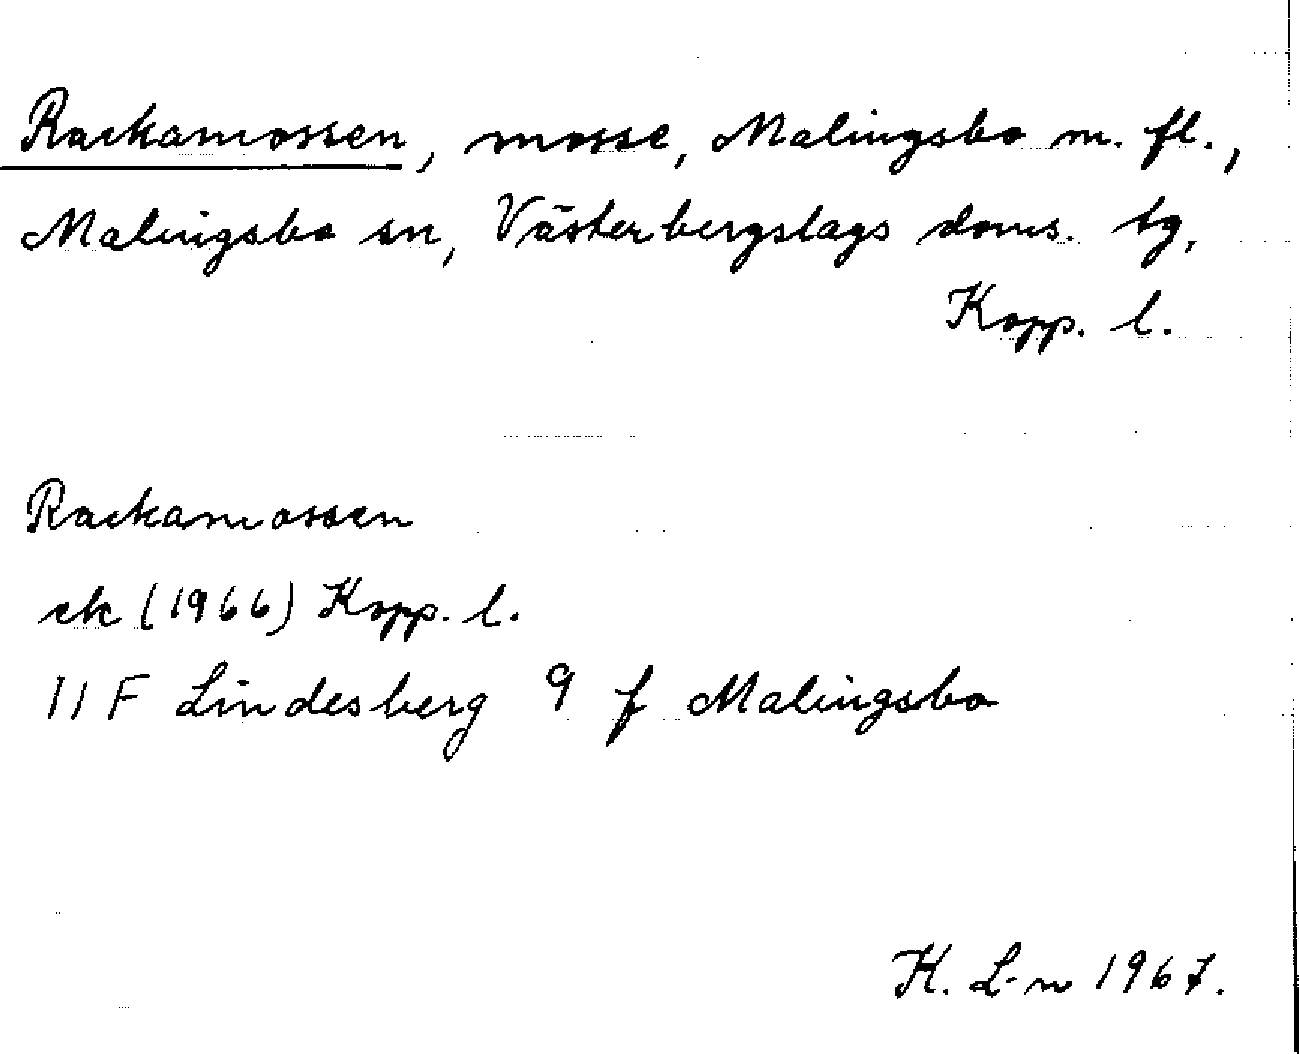 Rackamossen, mosse, Malingsbo m. fl.,
Malingsbo sn, Västerbergslags doms. tg,
Kopp. l.
Rackamossen
ek (1966) Kopp. l.
11 F Lindesberg 9 f Malingsbo
K. L-n 1967.